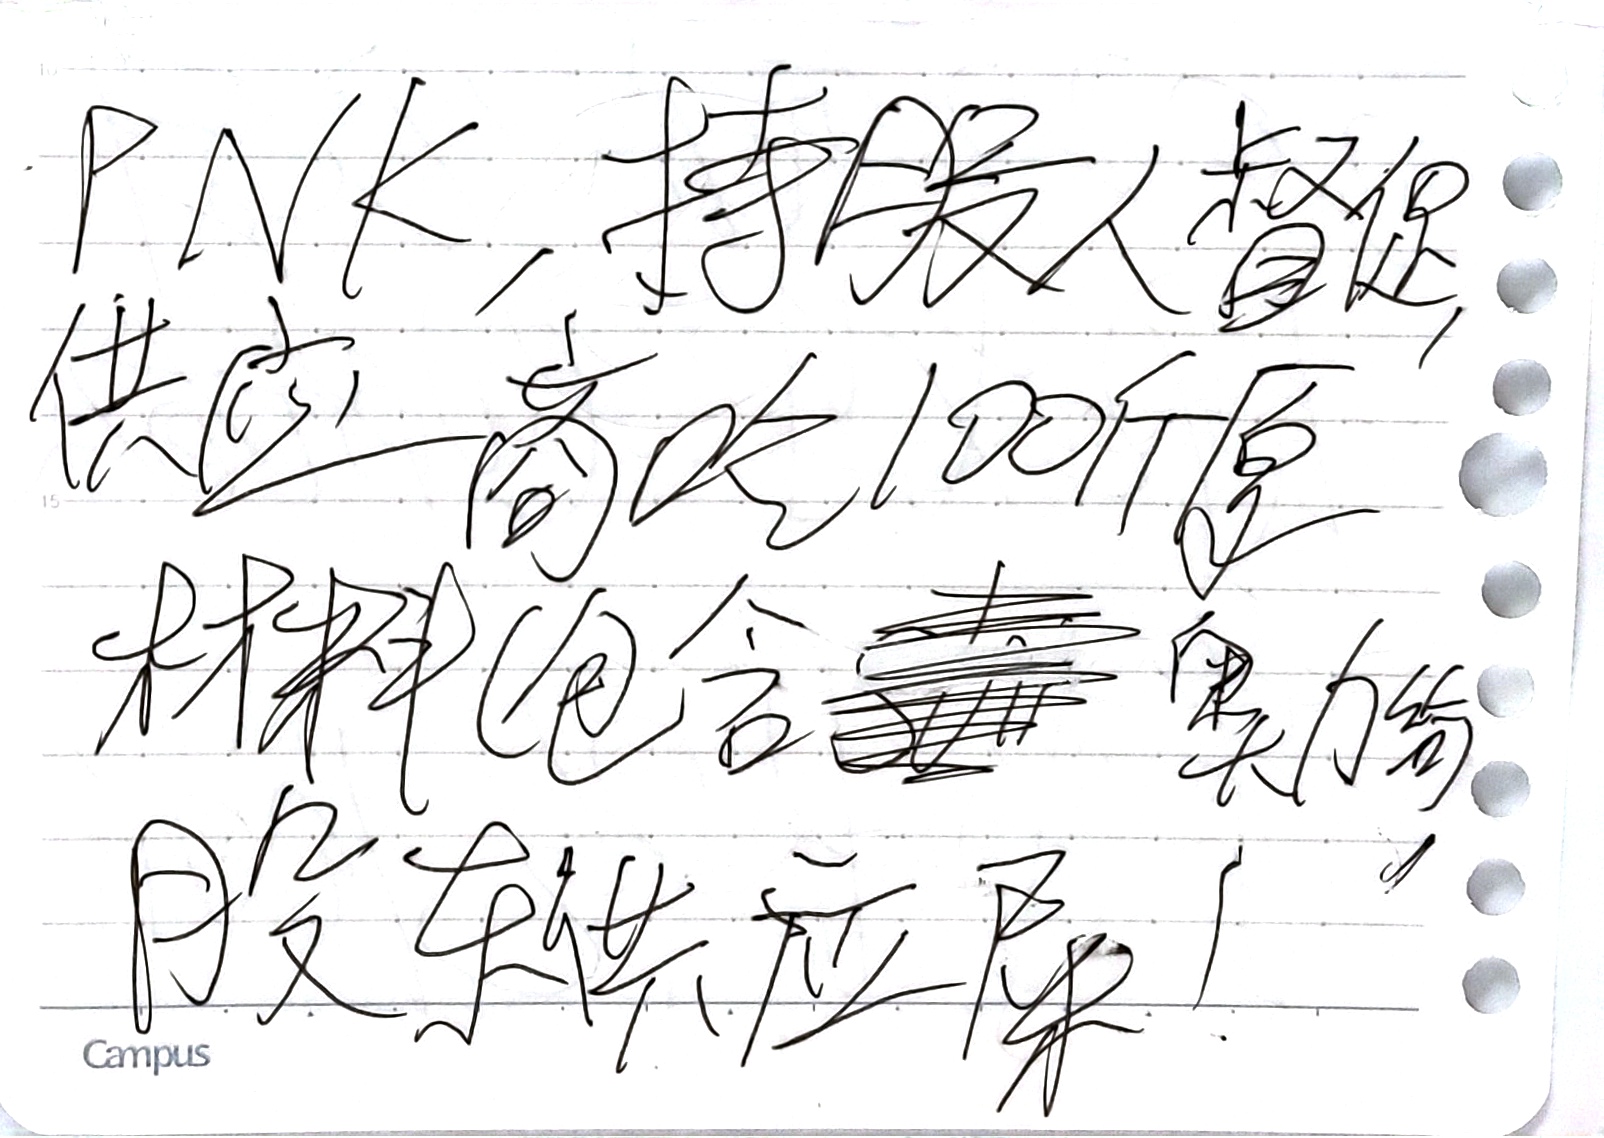 PNK,持股人督促,
供应商吃100仟原
材料包含奥力给
股东供应保!
Campus